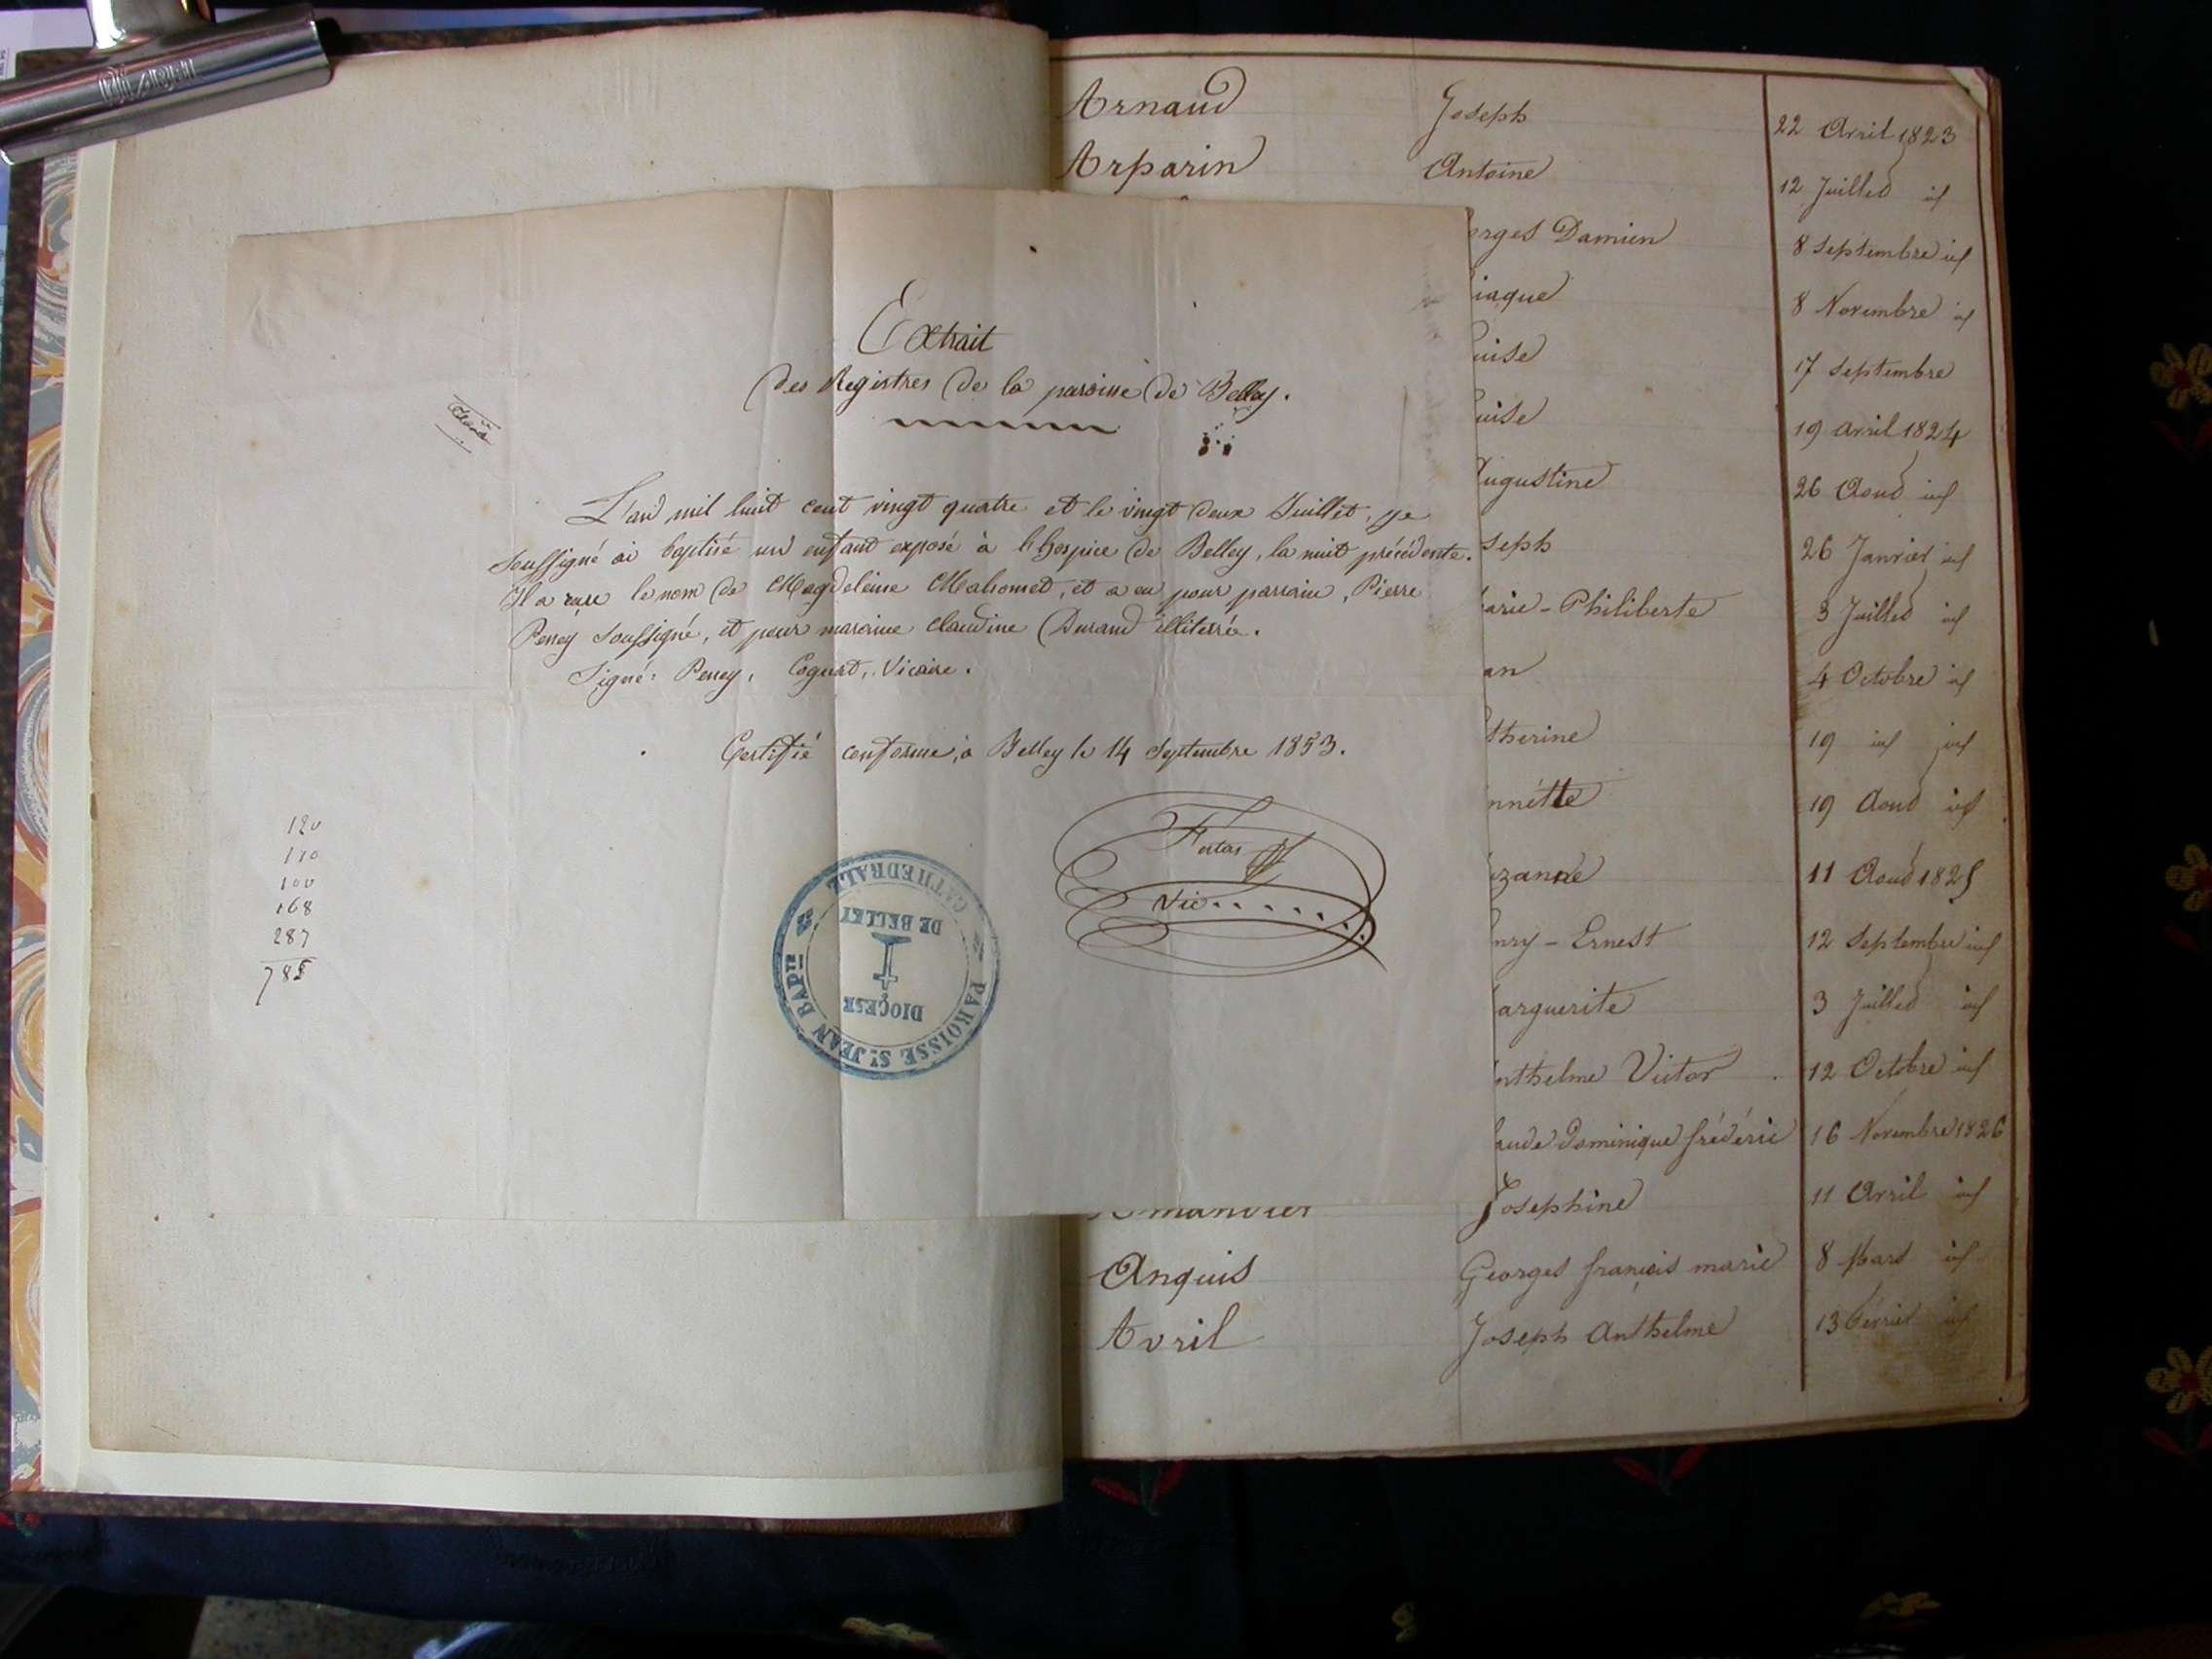 Extrait
des Registres de la paroisse de Belley.
L'an mil huit cent vingt quatre et le vingt deux Juillet, je
soussigné ai baptisé un enfant exposé à l'hospice de Belley, la nuit précédente.
Il a reçu le nom de Magdeleine Mahomet, et a eu pour parrain, Pierre
Perrey soussigné, et pour marraine Claudine Durand illitérée.
Signé: Perrey, Vicaire.
Certifié conforme, à Belley le 14 Septembre 1853.
Vic......
120
110
100
168
287
785
PAROISSE St. JEAN BAPte CATHEDRALE
DIOCESE
DE BELLEY
Arnaud Joseph 22 Avril 1823
Arparin Antoine 12 Juillet id
orges Damien 8 Septembre id
iaque 8 Novembre id
uise 17 Septembre
uise 19 avril 1824
ugustine 26 Aout id
seph 26 Janvier id
arie-Philiberte 3 Juillet id
an 4 Octobre id
therine 19 id id
nnette 19 Aout id
uzanne 11 Aout 1825
nry-Ernest 12 Septembre id
arguerite 3 Juillet id
nthelme Victor 12 Octobre id
aude Dominique frédéric 16 Novembre 1826
Josephine 11 Avril id
Anquis Georges françois marie 8 Mars id
Avril Joseph Anthelme 13 février id